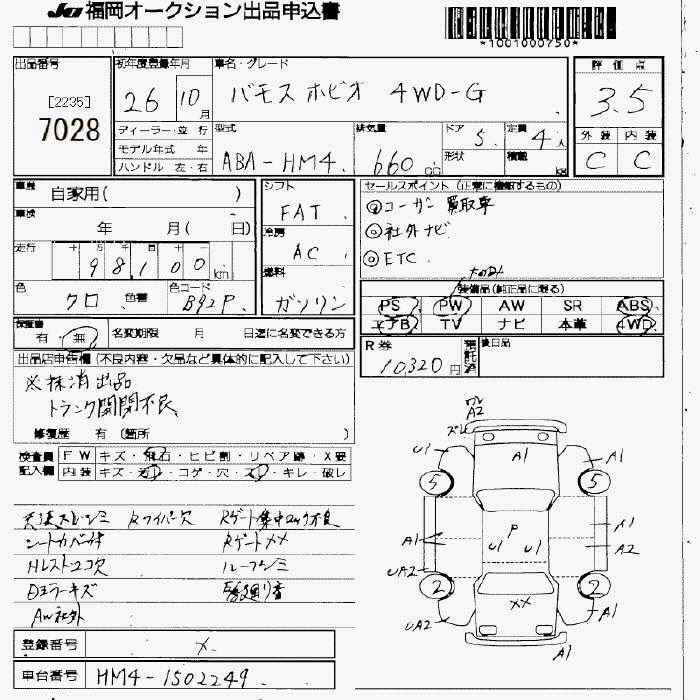 JU 福岡オークション出品申込書
*1001000750*
出品番号 [2235] 7028
初年度登録年月 26 10月
車名・グレード バモス ホビオ 4WD-G
評価点 3.5
外装 内装
C C
ディーラー・並行
モデル年式 年
ハンドル 左・右
型式 ABA-HM4
排気量 660 cc
ドア 5
形状
定員 4人
積載 kg
車歴 自家用( )
車検 年 月( 日)
走行 十 万 千 百 十 一
98,100 km
色 クロ 色替 色コード B92P
シフト FAT
冷房 AC
燃料 ガソリン
セールスポイント (正常に機能するもの)
◎コーサン 買取車
◎社外ナビ
◎ETC
装備品(純正品に限る)
PS PW AW SR ABS
エアB TV ナビ 本革 4WD
保証書 有・無
名変期限 月 日迄に名変できる方
R券 10,320円
預託済
後日品
出品店申告欄(不良内容・欠品など具体的に記入して下さい)
※抹消出品
トランク開閉不良
修復歴 有(箇所 )
検査員記入欄
FW キズ・飛石・ヒビ割・リペア跡・X要
内装 キズ・汚レ・コゲ・穴・スレ・キレ・破レ
Rワイパー欠 Rゲート集中ロック不良
シートカバー付 Rゲートメメ
Hレスト2コ欠 ルーフシミ
Dミラーキズ
AW社外
ワレ
A2
ズレ
U1 A1 A1
5 5
P
A1 U1 U1 A1
A2
UA2
2 2
XX
UA2 A1
A1
登録番号 X
車台番号 HM4-1502249